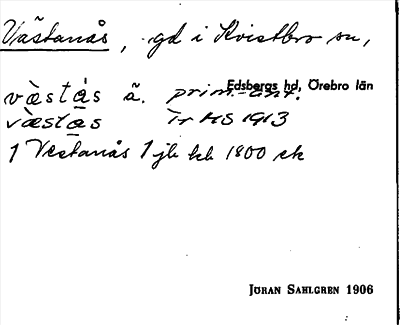 Västanås, gd i Kvistbro sn,
Edsbergs hd, Örebro län
væ̀stás ä. prim.-ant.
væ̀stas Tr HS 1913
1 Vestanås 1 jb kb 1800 ek
JÖRAN SAHLGREN 1906